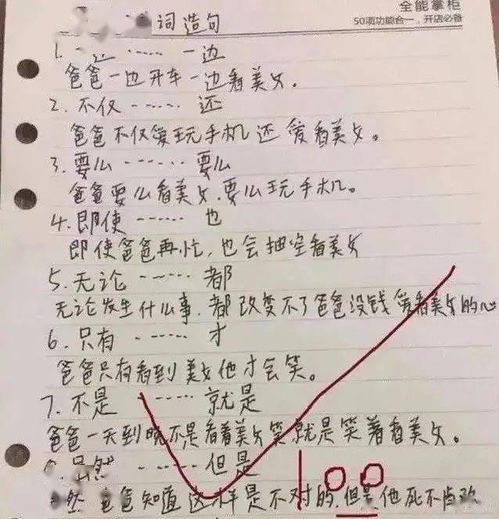 全能掌柜
50项功能合一,开店必备
词造句
1. 一边 …… 一边
爸爸一边开车一边看美女.
2. 不仅 …… 还
爸爸不仅爱玩手机还爱看美女。
3. 要么 …… 要么
爸爸要么看美女,要么玩手机。
4. 即使 …… 也
即使爸爸再忙,也会抽空看美女
5. 无论 …… 都
无论发生什么事,都改变不了爸爸没钱爱看美女的心
6. 只有 …… 才
爸爸只有看到美女他才会笑。
7. 不是 …… 就是
爸爸一天到晚不是看着美女笑就是笑着看美女。
虽然 …… 但是
然爸爸知道这样是不对的,但是他死不肯改
100